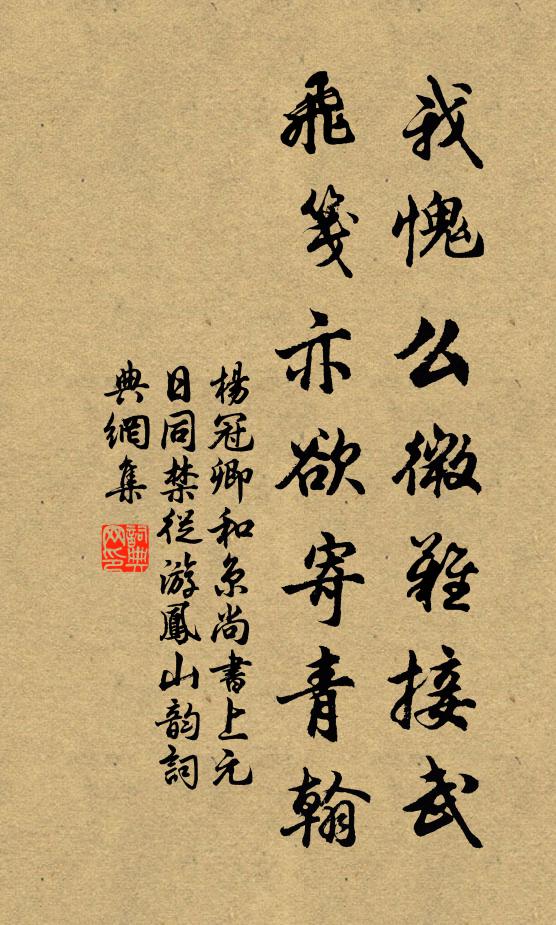 我愧么微難接武
飛箋亦欲寄青翰
楊冠卿和京尚書上元
日同禁從游鳳山韵詞
典網集
詞典網印